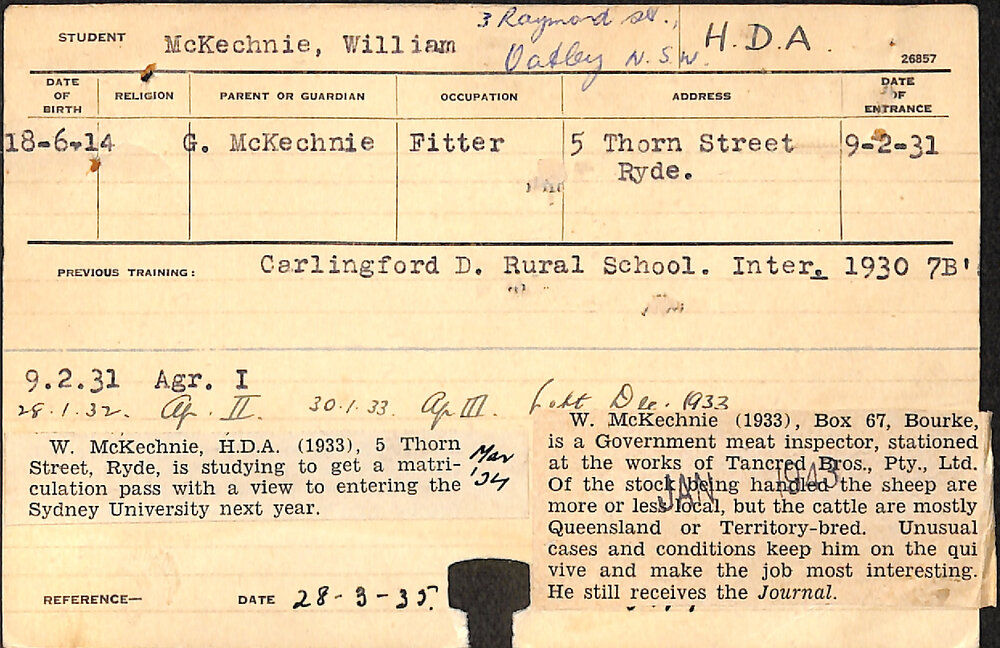 3 Raymond St.,
STUDENT McKechnie, William Oatley N.S.W. H.D.A.
26857
DATE OF BIRTH RELIGION PARENT OR GUARDIAN OCCUPATION ADDRESS DATE OF ENTRANCE
18-6-14 G. McKechnie Fitter 5 Thorn Street 9-2-31
Ryde.
PREVIOUS TRAINING: Carlingford D. Rural School. Inter. 1930 7B'
9.2.31 Agr. I
28.1.32. Ag. II. 30.1.33. Ag III. Left Dec. 1933
W. McKechnie, H.D.A. (1933), 5 Thorn
Street, Ryde, is studying to get a matri-
culation pass with a view to entering the
Sydney University next year.
Mar
'34
W. McKechnie (1933), Box 67, Bourke,
is a Government meat inspector, stationed
at the works of Tancred Bros., Pty., Ltd.
Of the stock being handled the sheep are
more or less local, but the cattle are mostly
Queensland or Territory-bred. Unusual
cases and conditions keep him on the qui
vive and make the job most interesting.
He still receives the Journal.
JAN 1943
REFERENCE— DATE 28-3-35.